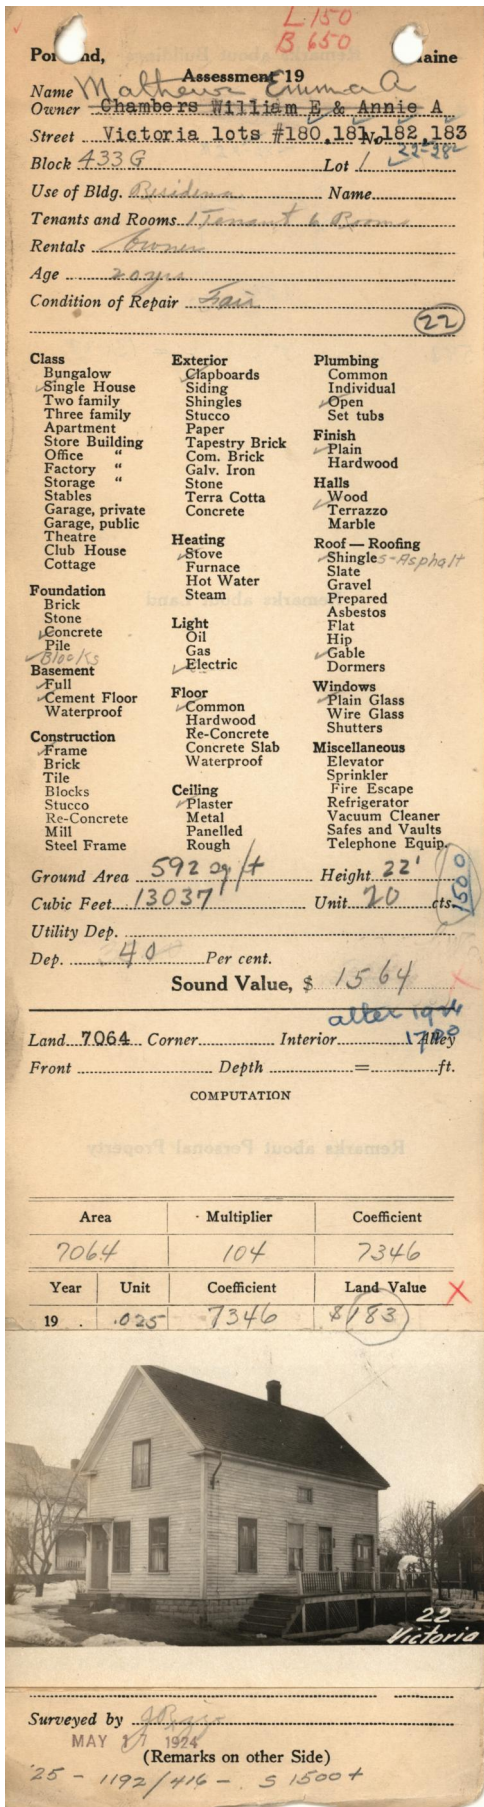 L.150
B 650
Portland, Maine
Assessment 19
Name Mathews Emma A
Owner Chambers William E & Annie A
Street Victoria lots #180,181,No.182,183
22-28
Block 433 G Lot 1
Use of Bldg. Residence Name
Tenants and Rooms 1 Tenant 6 Rooms
Rentals Owner
Age 20 yrs
Condition of Repair Fair
22
Class
Bungalow
Single House
Two family
Three family
Apartment
Store Building
Office "
Factory "
Storage "
Stables
Garage, private
Garage, public
Theatre
Club House
Cottage
Foundation
Brick
Stone
Concrete
Pile
Blocks
Basement
Full
Cement Floor
Waterproof
Construction
Frame
Brick
Tile
Blocks
Stucco
Re-Concrete
Mill
Steel Frame
Exterior
Clapboards
Siding
Shingles
Stucco
Paper
Tapestry Brick
Com. Brick
Galv. Iron
Stone
Terra Cotta
Concrete
Heating
Stove
Furnace
Hot Water
Steam
Light
Oil
Gas
Electric
Floor
Common
Hardwood
Re-Concrete
Concrete Slab
Waterproof
Ceiling
Plaster
Metal
Panelled
Rough
Plumbing
Common
Individual
Open
Set tubs
Finish
Plain
Hardwood
Halls
Wood
Terrazzo
Marble
Roof — Roofing
Shingles-Asphalt
Slate
Gravel
Prepared
Asbestos
Flat
Hip
Gable
Dormers
Windows
Plain Glass
Wire Glass
Shutters
Miscellaneous
Elevator
Sprinkler
Fire Escape
Refrigerator
Vacuum Cleaner
Safes and Vaults
Telephone Equip.
Ground Area 592 sq ft Height 22'
Cubic Feet 13037 Unit 20 cts.
1500
Utility Dep.
Dep. 40 Per cent.
Sound Value, $ 1564
after 1924
Land 7064 Corner Interior Alley
Front Depth = ft.
COMPUTATION
Area Multiplier Coefficient
7064 104 7346
Year Unit Coefficient Land Value
19 .025 7346 $183
22
Victoria
Surveyed by
MAY 17 1924
(Remarks on other Side)
'25 - 1192/416 - S 1500+